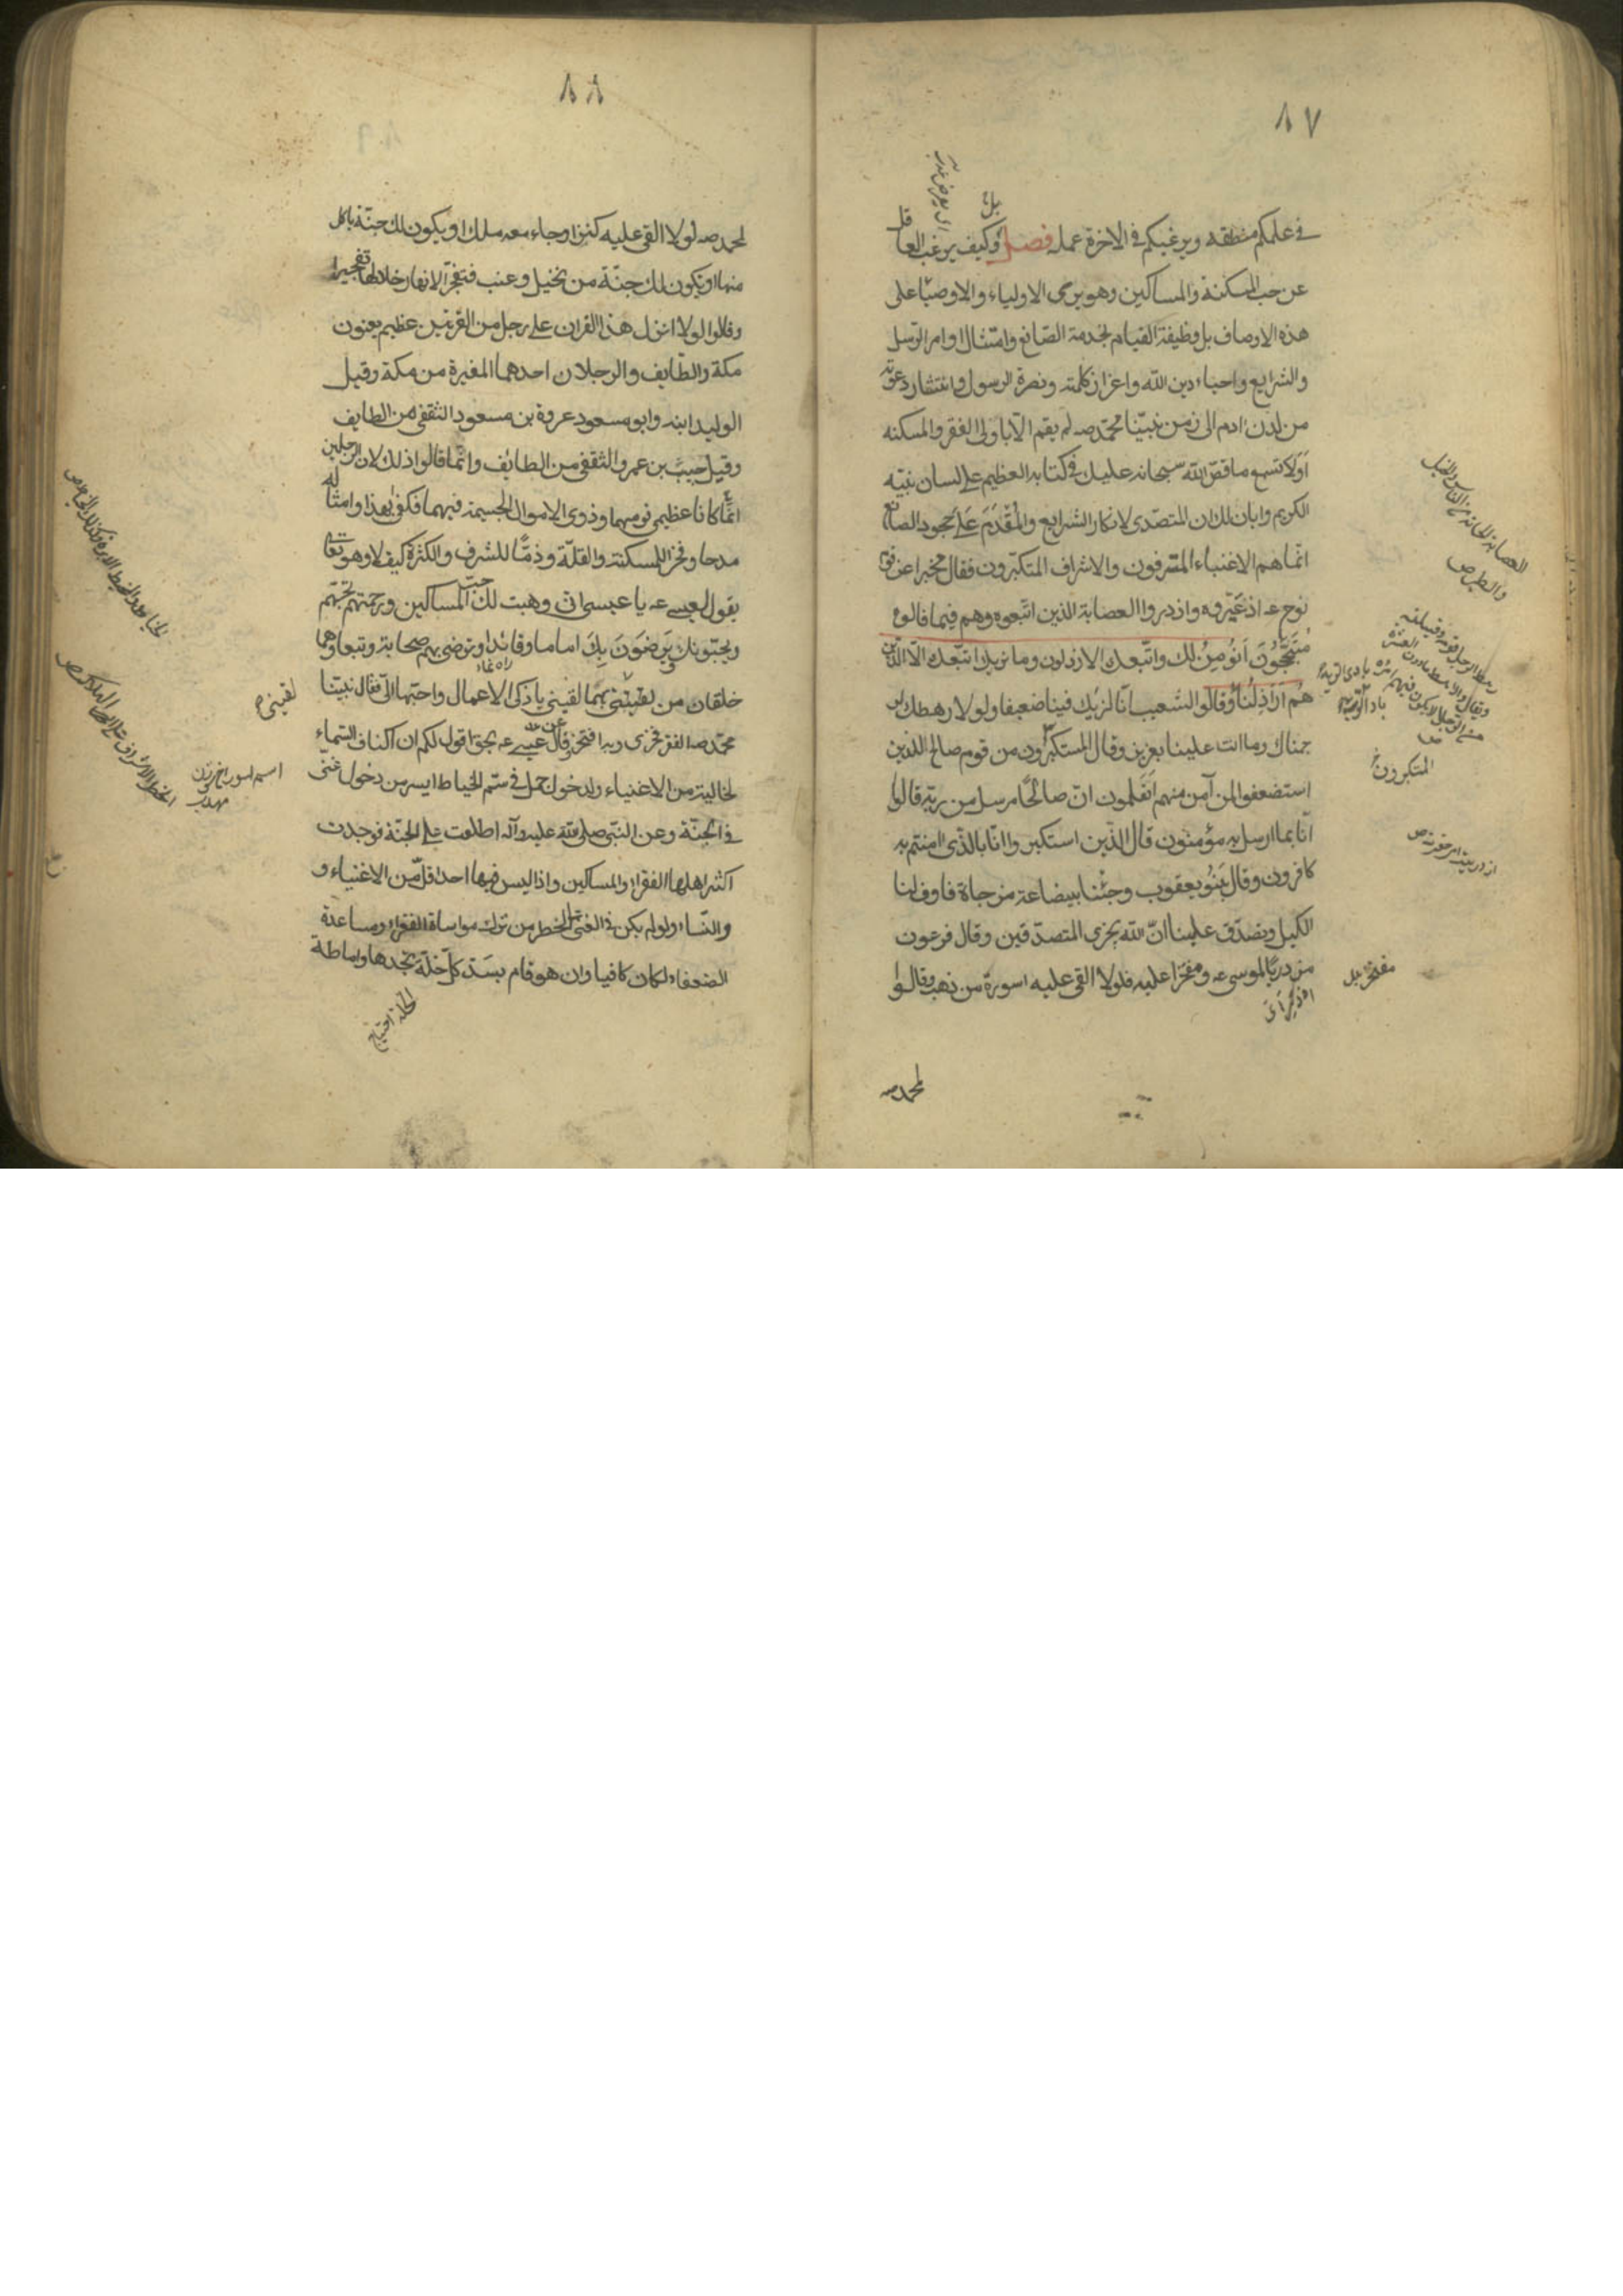 ٨٧
في علمكم منطقه ويرغبكم في الاخرة عمله فصل وكيف يرغب العاقل
عن حب المسكنة والمساكين وهو يرى الاولياء والاوصياء على
هذه الاوصاف بل وظيفة القيام بخدمة الصانع وامتثال اوامر الرسل
والشرايع واحياء دين الله واعزاز كلمته ونصرة الرسول وانتشار دعوته
من لدن ادم الى زمن نبينا محمد صه لم يقم الا باولى الفقر والمسكنه
اولا تسمع ما قص الله سبحانه عليك في كتابه العظيم على لسان نبيه
الكريم وابان لك ان المتصدى لانكار الشرايع والمقدم على جحود الصانع
انما هم الاغنياء المترفون والاشراف المتكبرون فقال مخبرا عن قوم
نوح عه اذ عيروه وازدروا العصابة الذين اتبعوه وهم فيما قالوه
متبجحون انؤمن لك واتبعك الارذلون وما نريك اتبعك الا الذين
هم اراذلنا وقالوا لشعيب انا لنريك فينا ضعيفا ولولا رهطك لر
جمناك وما انت علينا بعزيز وقال المستكبرون من قوم صالح للذين
استضعفوا لمن آمن منهم اتعلمون ان صالحا مرسل من ربه قالوا
انا بما ارسل به مؤمنون قال الذين استكبروا انا بالذى امنتم به
كافرون وقال بنو يعقوب وجئنا ببضاعة مزجاة فاوف لنا
الكيل وتصدق علينا ان الله يجزى المتصدقين وقال فرعون
مزدريا لموسى عه ومفتخرا عليه فلولا القى عليه اسورة من ذهب وقالوا
المتكبرون خ
مفتخرا بل
لمحمد صه
٨٨
لمحمد صه لولا القى عليه كنز او جاء معه ملك او يكون لك جنة ياكل
منها او تكون لك جنة من نخيل وعنب فتفجر الانهار خلالها تفجيرا
وقالوا لولا انزل هذا القران على رجل من القريتين عظيم يعنون
مكة والطايف والرجلان احدهما المغيرة من مكة وقيل
الوليد ابنه وابو مسعود عروة بن مسعود الثقفى من الطايف
وقيل حبيب بن عمرو الثقفى من الطايف وانما قالوا ذلك لان الرجلين
انما كانا عظيمى قومهما وذوى الاموال الجسيمة فيهما فكفى بهذا وامثاله
مدحا وفخرا للمسكنة والقلة وذما للشرف والكثرة كيف لا وهو تعالى
يقول لعيسى عه يا عيسى انى وهبت لك حب المساكين ورحمتهم تحبهم
ويحبونك يرضون بك اماما وقائدا وترضى بهم صحابة وتبعا وهما
خلقان من لقينى بهما لقينى بازكى الاعمال واحبها الى فقال نبينا
محمد صه الفقر فخرى وبه افتخر وقال عيسى عه بحق اقول لكم ان اكناف السماء
لخالية من الاغنياء ولدخول جمل في سم الخياط ايسر من دخول غنى
في الجنة وعن النبى صلى الله عليه وآله اطلعت على الجنة فوجدت
اكثر اهلها الفقراء والمساكين واذا ليس فيها احد اقل من الاغنياء و
والنساء ولو لم يكن في الغنى الا الخطر من ترك مواساة الفقراء ومساعدة
الضعفاء لكان كافيا وان هو قام بسد كل خلة يجدها واماطة
لقينى